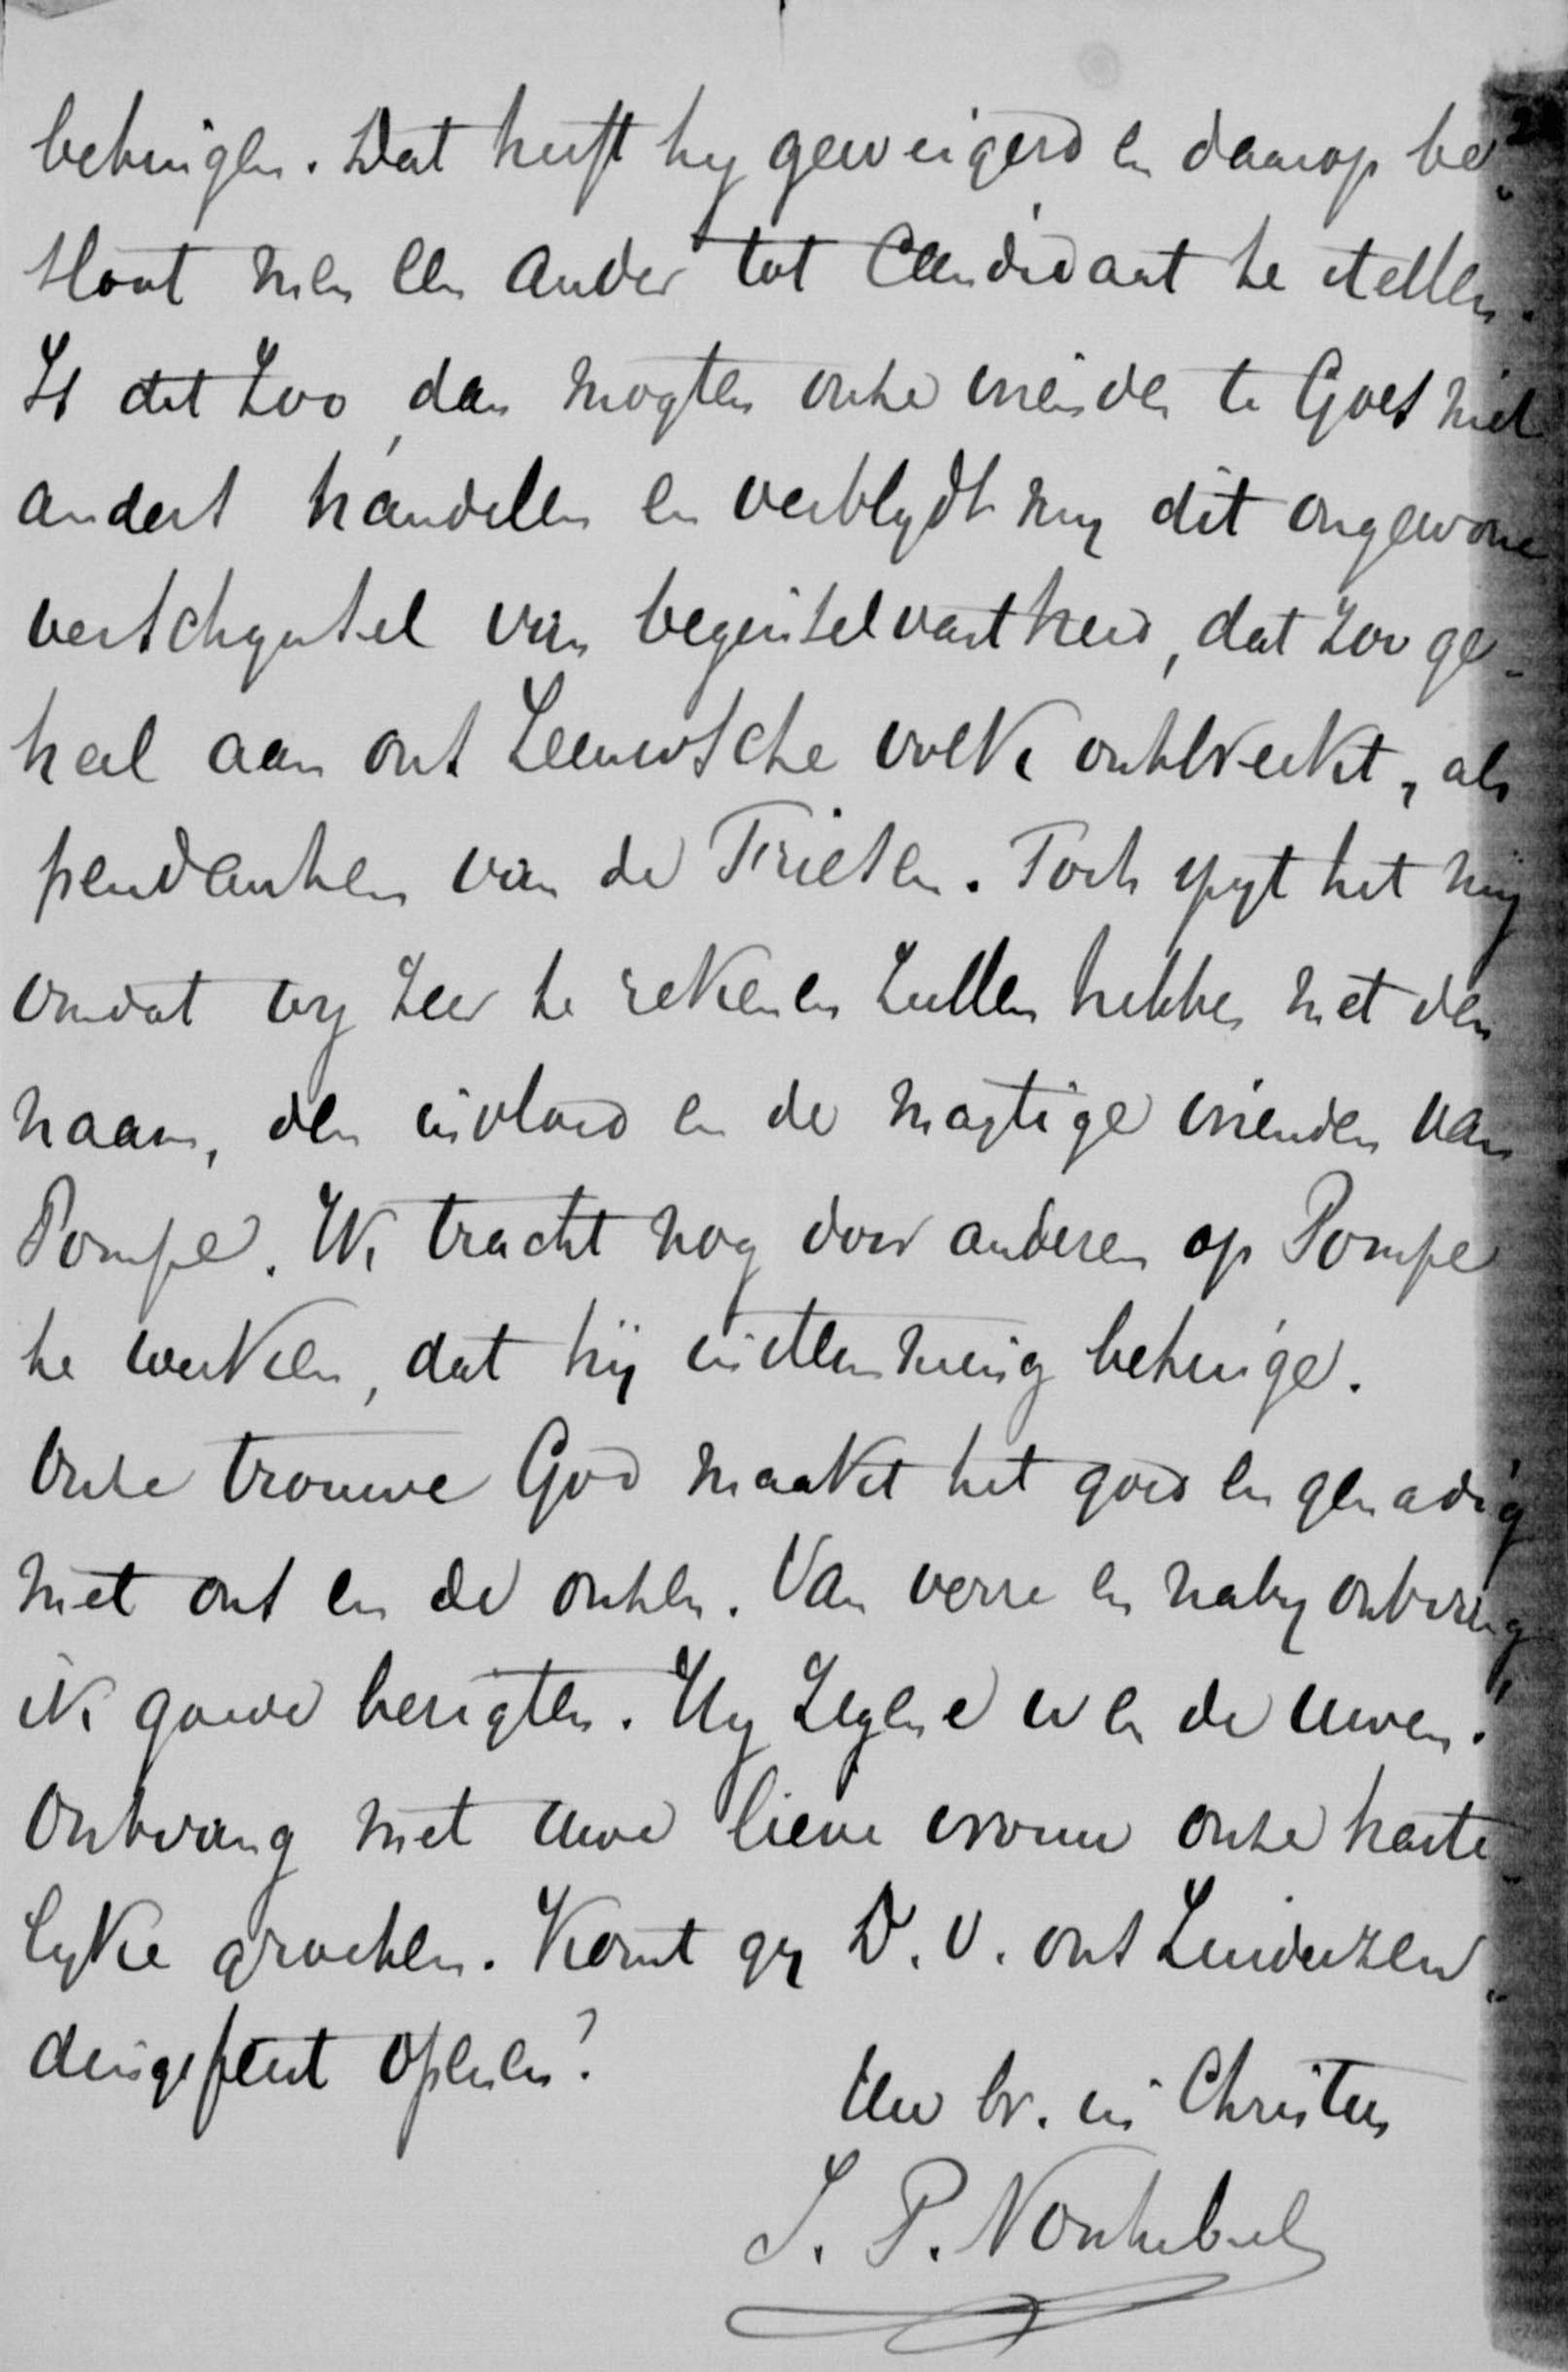 betuigen. Dat heeft hy geweigerd en daarop be-
sloot men een ander tot Candidaat te stellen.
Is dit zoo, dan mogten onze vrienden te Goes niet
anders handelen en verblydt my dit ongewone
verschynsel van beginselvastheid, dat zoo ge-
heel aan ons Zeeuwsche volk ontbreekt, als
pendanten van de Friesen. Toch spyt het my
omdat wy zeer te rekenen zullen hebben met den
naam, den invloed en de magtige vrienden van
Pompe. Ik tracht nog door anderen op Pompe
te werken, dat hij instemming betuige.
Onze trouwe God maakt het goed en genadig
met ons en de onzen. Van verre en naby ontvang
ik goede berigten. Hy zegene u en de uwen.
Ontvang met uwe lieve vrouw onze harte-
lyke groeten. Komt gy D.V. ons Zuiderzen-
dingsfeest openen?
Uw br. in Christus
J. P. Nonhebel